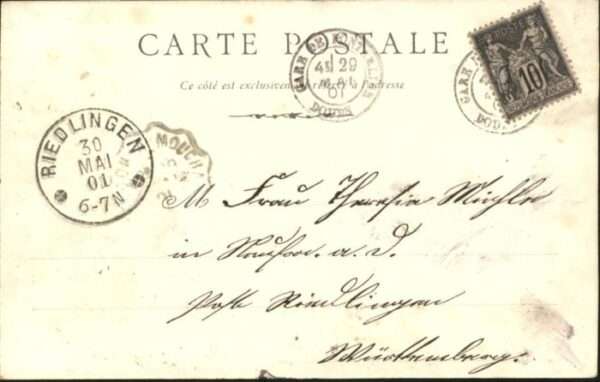 CARTE POSTALE
Ce côté est exclusivement réservé à l'adresse
GARE DE
29
MAI
01
DOUBS
10
GARE
RIEDLINGEN
30
MAI
01
6-7N
MOUCHA
M Frau Theresia
in a. d.
Poste Riedlingen
Württemberg.